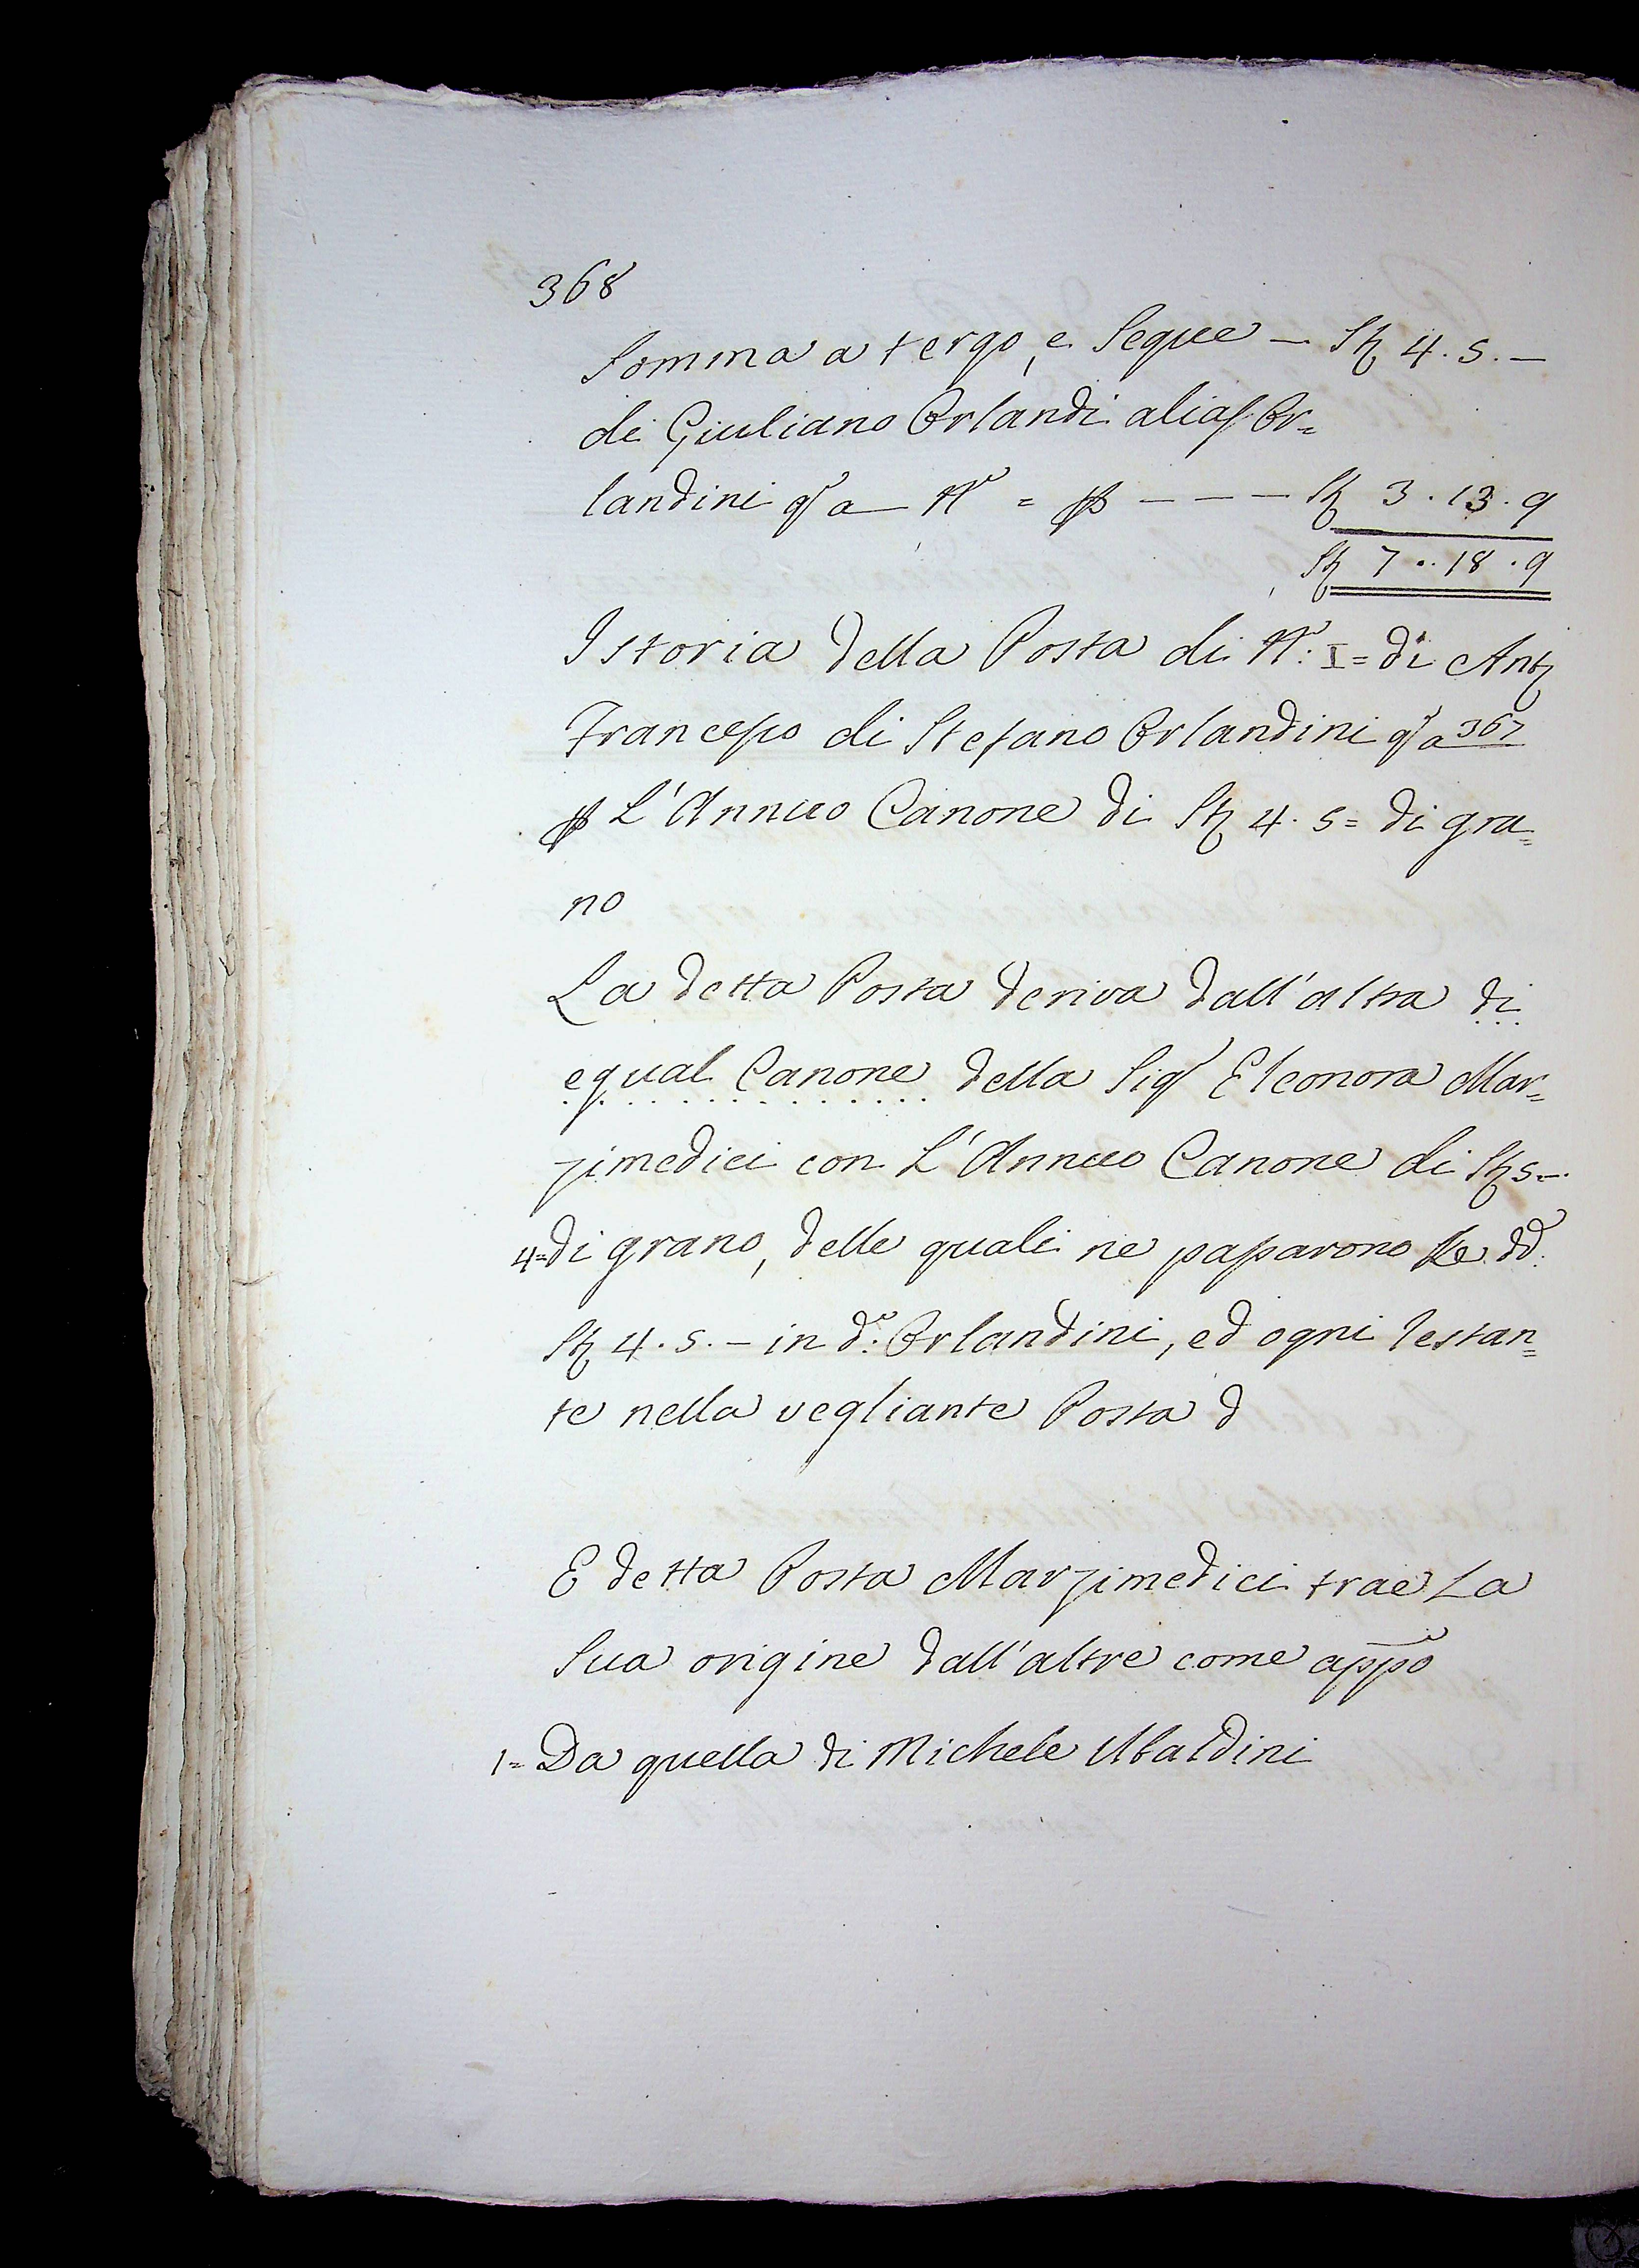 368
Somma a tergo, e Segue — St 4. 5. —
di Giuliano Orlandi alias Or=
landini qs a N.o = p — — — St 3. 13. 9
St 7 .. 18 . 9
Istoria della Posta di N.o: I= di Anto
Francesco di Stefano Orlandini qs a 367
p L'Annuo Canone di St 4. 5= di gra=
no
La detta Posta deriva dall'altra di
equal Canone della Sigra Eleonora Mar=
zimedici con L'Annuo Canone di St 5—.
4= di grano, delle quali ne passarono Le dd.e
St 4. 5. — in d.o: Orlandini, ed ogni restan=
te nella vegliante Posta d
E detta Posta Marzimedici trae La
Sua origine dall'altre come appo
1= Da quella di Michele Ubaldini